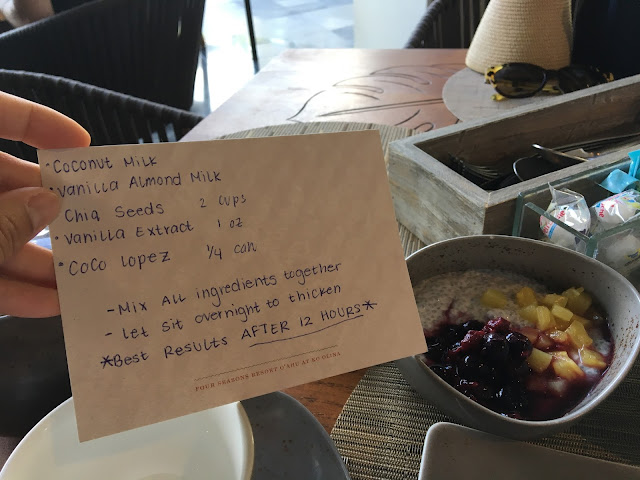 • Coconut Milk
• Vanilla Almond Milk
Chia Seeds 2 cups
• Vanilla Extract 1 oz
• Coco Lopez 1/4 can
- Mix All ingredients together
- Let sit overnight to thicken
*Best Results AFTER 12 HOURS*
FOUR SEASONS RESORT O'AHU AT KO OLINA